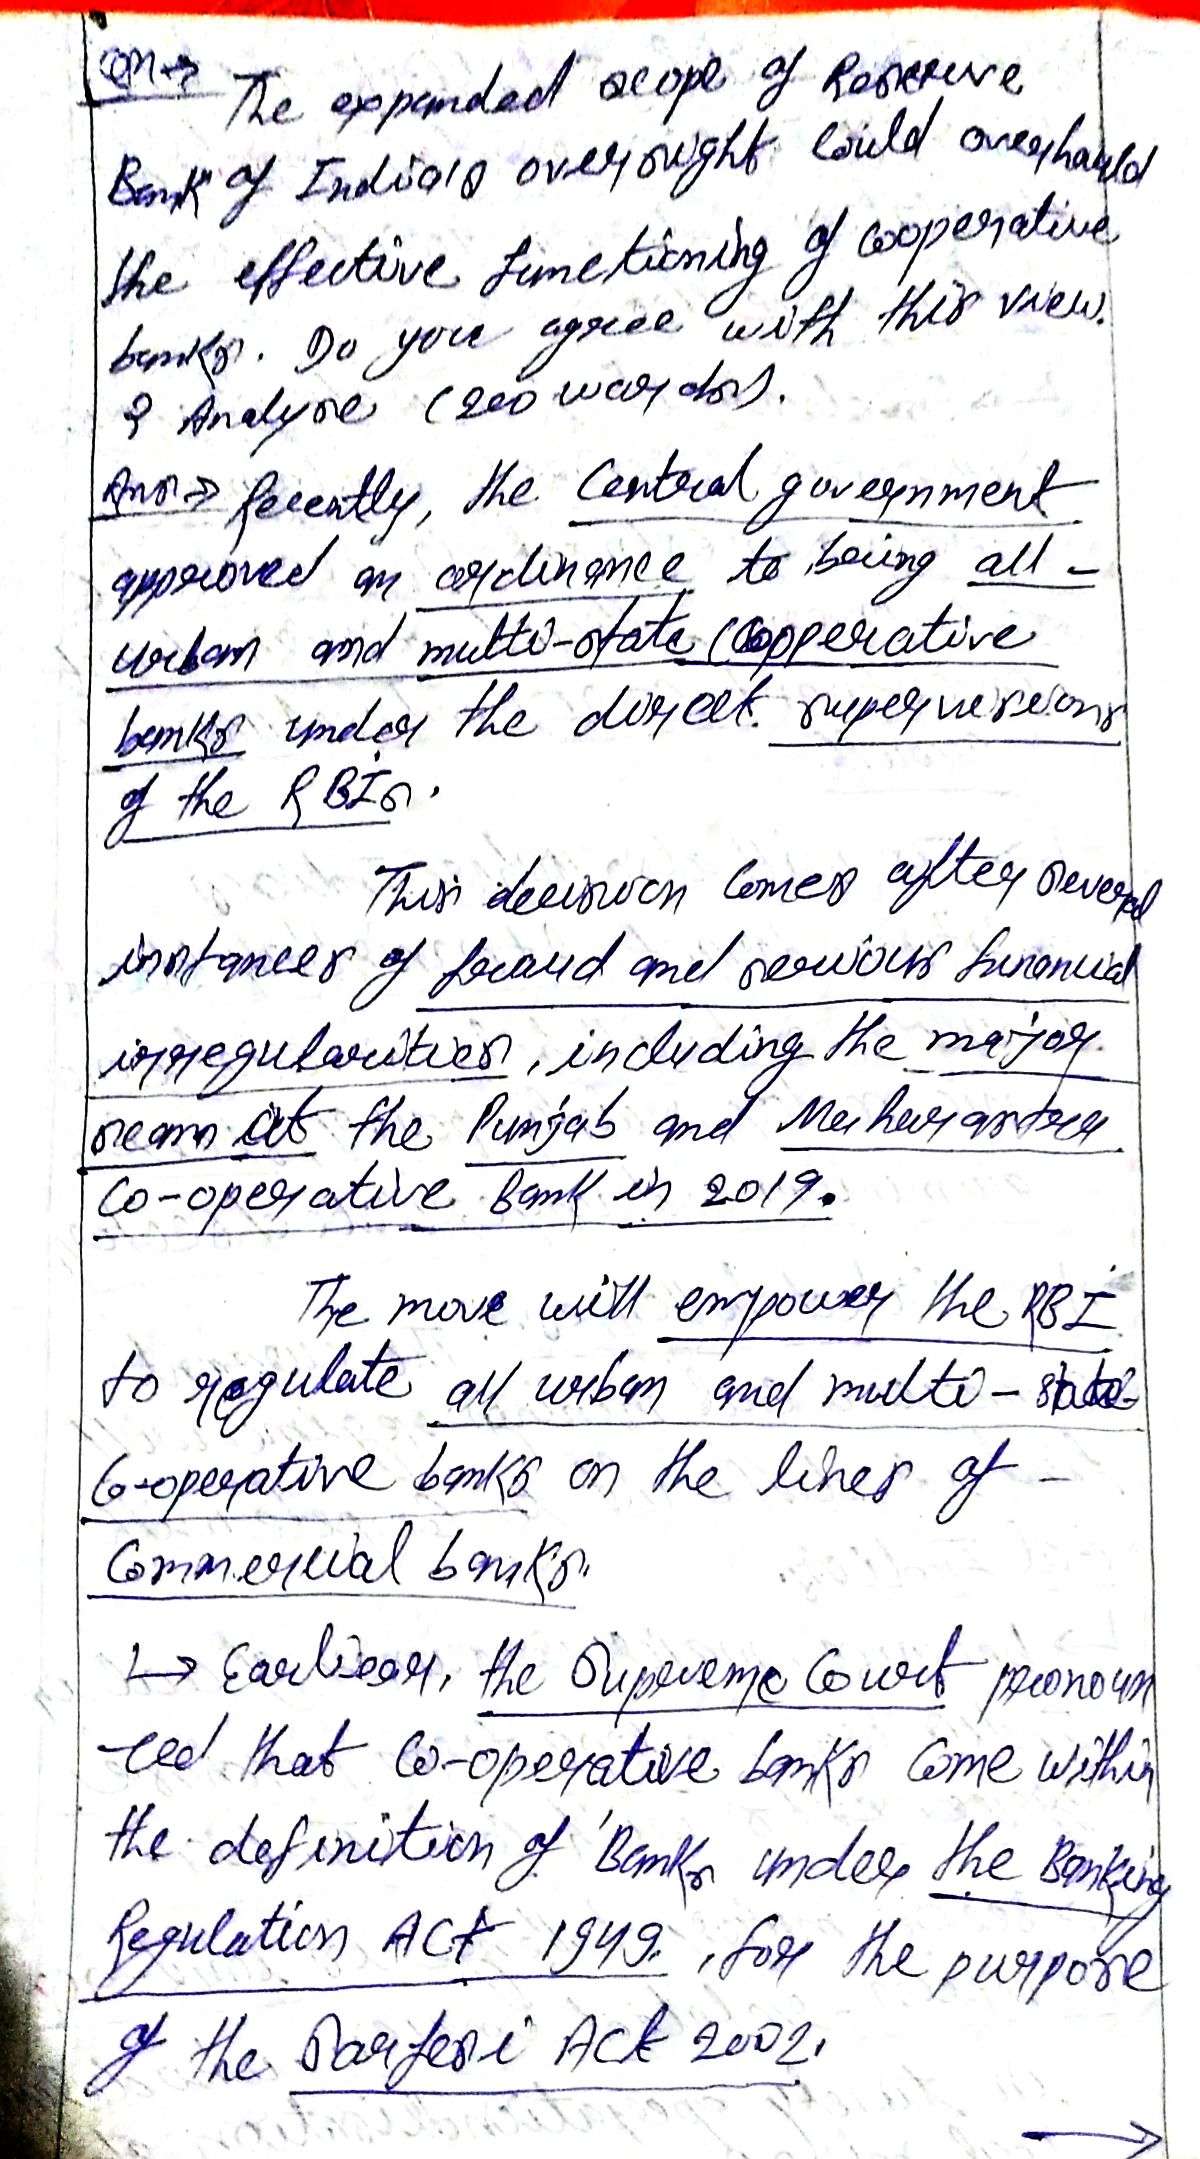 Qn → The expanded scope of Reserve
Bank of India's oversight could overhauld
the effective functioning of cooperative
banks. Do you agree with this view.
? Analyse (200 words).
Ans → Recently, the Central government
approved an ordinance to bring all -
urban and multi-state Cooperative
banks under the direct supervisions
of the RBIs.
This decision comes after several
instances of fraud and serious financial
irregularities, including the major
scam at the Punjab and Maharastra
Co-operative Bank in 2019.
The move will empower the RBI
to regulate all urban and multi - state
Co-operative banks on the lines of -
Commercial banks.
↳ Earliear, the Supreme Court pronoun
-ced that Co-operative banks come within
the definition of 'Banks under the Banking
Regulation Act 1949, for the purpose
of the Sarfesi Act 2002.
→